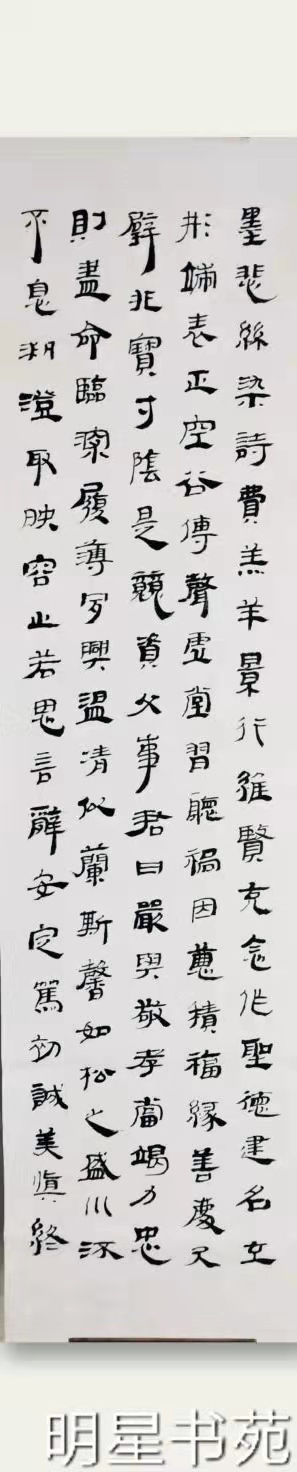 墨悲絲染詩費羔羊景行維賢克念作聖德建名立
形端表正空谷傳聲虛堂習聽禍因惡積福緣善慶尺
璧非寶寸陰是競資父事君曰嚴與敬孝當竭力忠
則盡命臨深履薄夙興溫凊似蘭斯馨如松之盛川流
不息淵澄取映容止若思言辭安定篤初誠美慎終
明星书苑